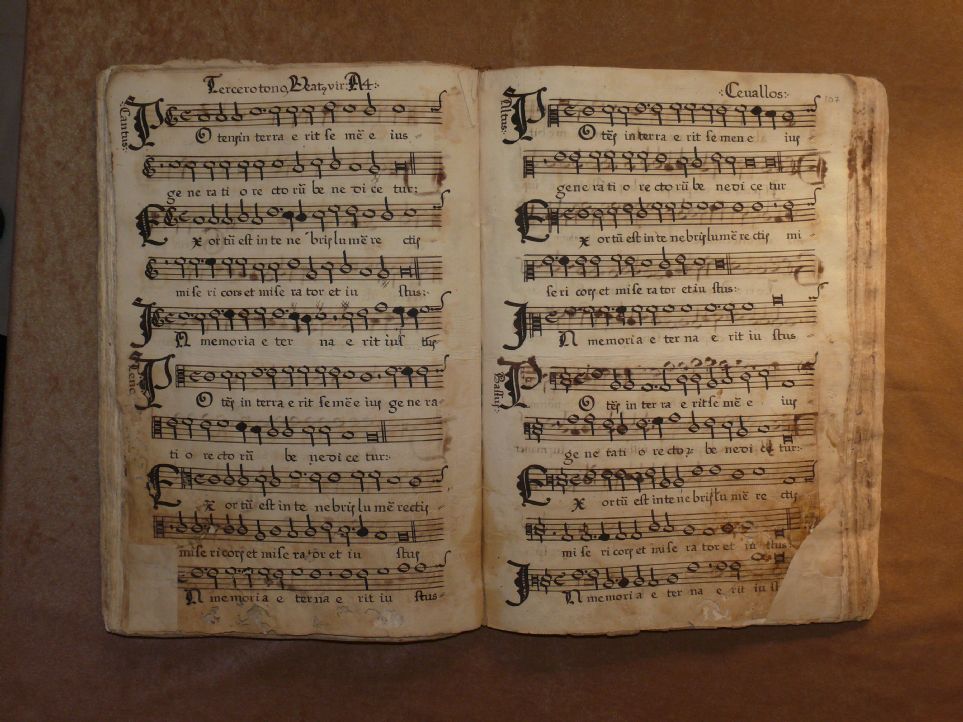 Tercero tono, Beatꝰ vir: A4:
Cantus:
POtens in terra e rit se mē e ius
ge ne ra ti o re cto rū be ne di ce tur:
Ex or tū est in te ne bris lu mē re ctis
mi se ri cors et mi se ra tor et iu stus:
IN memoria e ter na e rit ius tus
Tenor
POtēs in terra e rit se mē e ius ge ne ra
ti o re cto rū be ne di ce tur:
Ex or tū est in te ne bris lu mē rectis
mi se ri cors et mi se ra tor et iu stus
N memoria e ter na e rit iu stus
:Ceuallos:
107
Altus:
POtēs in terra e rit se men e ius
ge ne ra ti o re cto rū be ne di ce tur
Ex or tū est in te ne bris lu mē rectis mi
se ri cors et mi se ra tor et iu stus:
IN memoria e ter na e rit iu stus
Bassus:
POtēs in ter ra e rit se mē e ius
ge ne rati o re cto ꝝ be ne di ce tur:
Ex or tū est in te ne bris lu mē re ctis
mi se ri cors et mi se ra tor et iu stus:
IN memoria e ter na e rit iu st